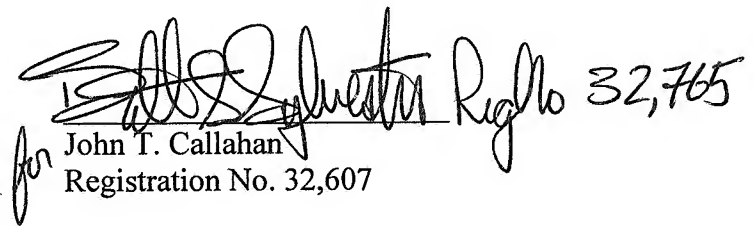 S Sylvester Reg No 32,765
for John T. Callahan
Registration No. 32,607